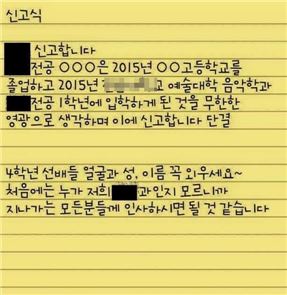 신고식
신고합니다
전공 ○○○은 2015년 ○○고등학교를
졸업하고 2015년 교 예술대학 음악학과
전공 1학년에 입학하게 된 것을 무한한
영광으로 생각하며 이에 신고합니다 단결
4학년 선배들 얼굴과 성, 이름 꼭 외우세요~
처음에는 누가 저희 과인지 모르니까
지나가는 모든분들께 인사하시면 될 것 같습니다